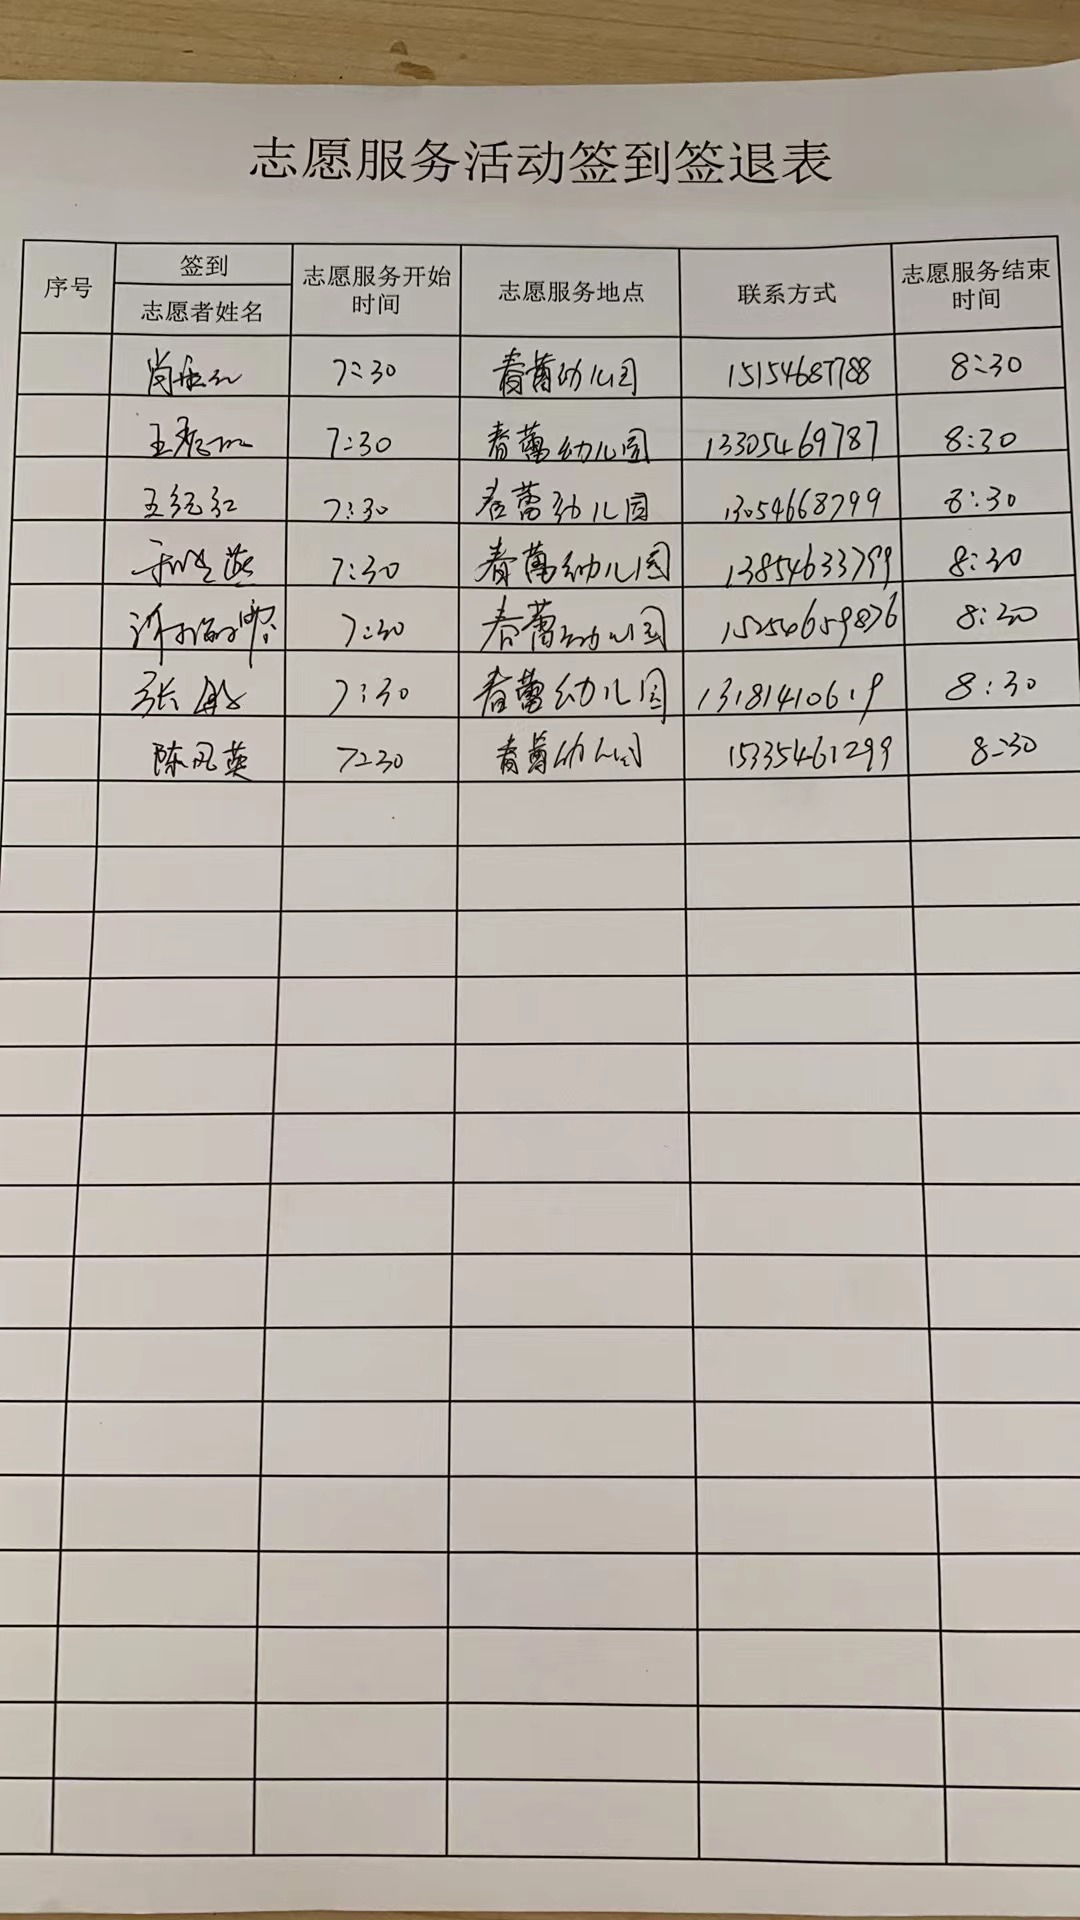 志愿服务活动签到签退表
序号 签到 志愿者姓名 志愿服务开始时间 志愿服务地点 联系方式 志愿服务结束时间
7:30 春蕾幼儿园 15154687788 8:30
王 7:30 春蕾幼儿园 13305469787 8:30
王纪红 7:30 春蕾幼儿园 13054668799 8:30
7:30 春蕾幼儿园 13854633799 8:30
许海霞 7:30 春蕾幼儿园 15254659876 8:30
张敏 7:30 春蕾幼儿园 8:30
陈凤英 7:30 春蕾幼儿园 15335461299 8:30